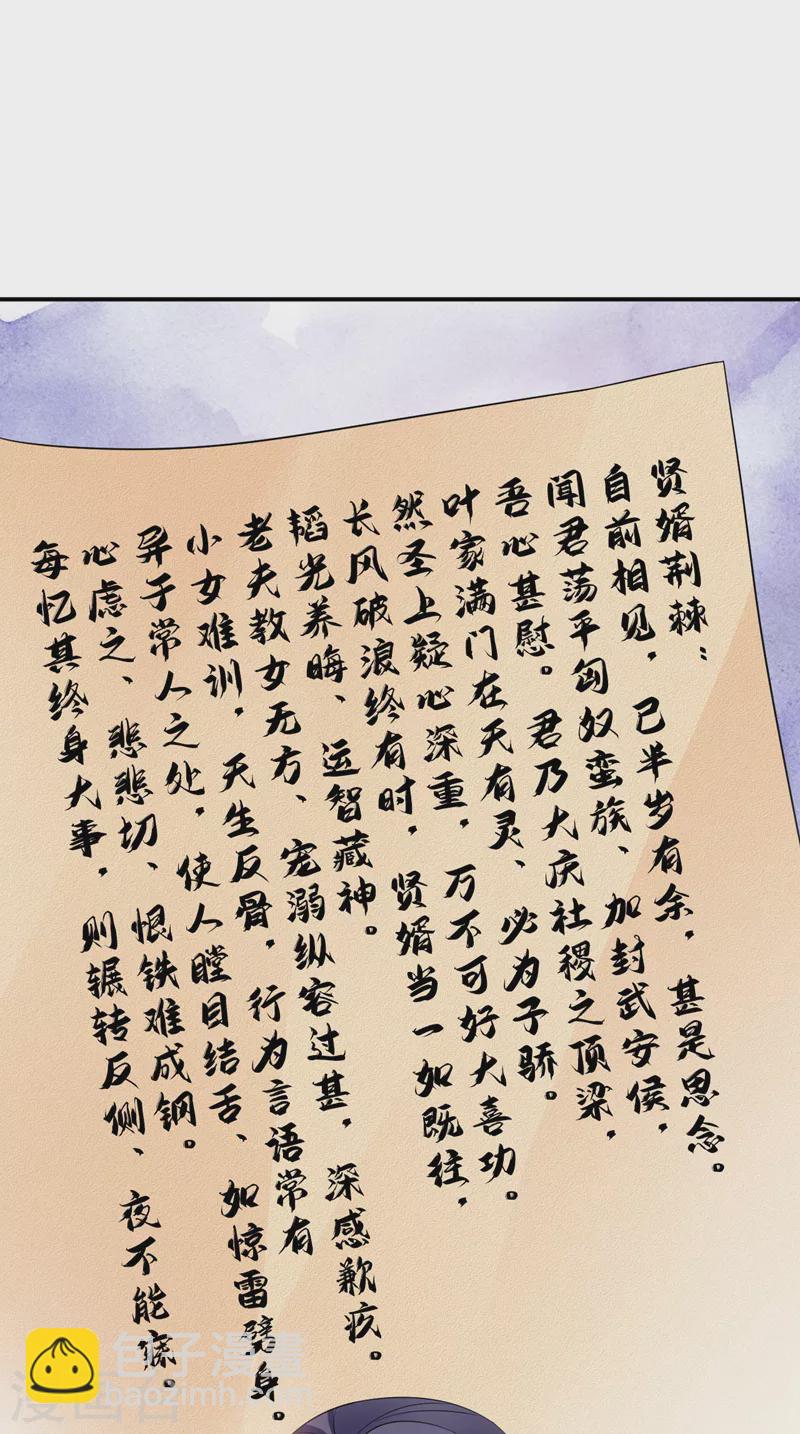 贤婿荆棘：
自前相见，已半岁有余，甚是思念。
闻君荡平匈奴蛮族、加封武安侯，
吾心甚慰。君乃大庆社稷之顶梁，
叶家满门在天有灵、必为子骄。
然圣上疑心深重，万不可好大喜功。
长风破浪终有时，贤婿当一如既往，
韬光养晦、运智藏神。
老夫教女无方、宠溺纵容过甚，深感歉疚。
小女难训，天生反骨，行为言语常有
异于常人之处，使人瞠目结舌、如惊雷劈身。
心虑之、悲悲切、恨铁难成钢。
每忆其终身大事，则辗转反侧、夜不能寐。
包子漫畫
baozimh.com